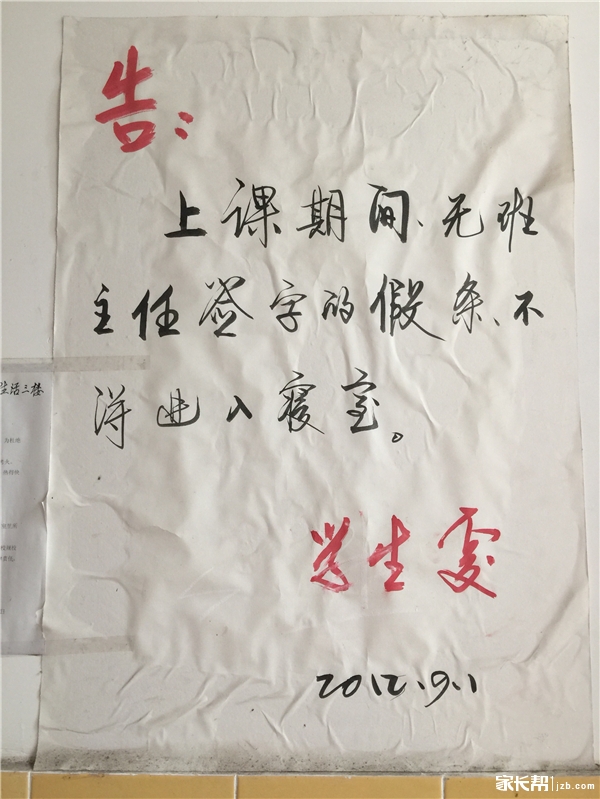 告：
上课期间、无班
主任签字的假条、不
得进入寝室。
学生处
2012.9.1
生活三楼
家长帮 jzb.com